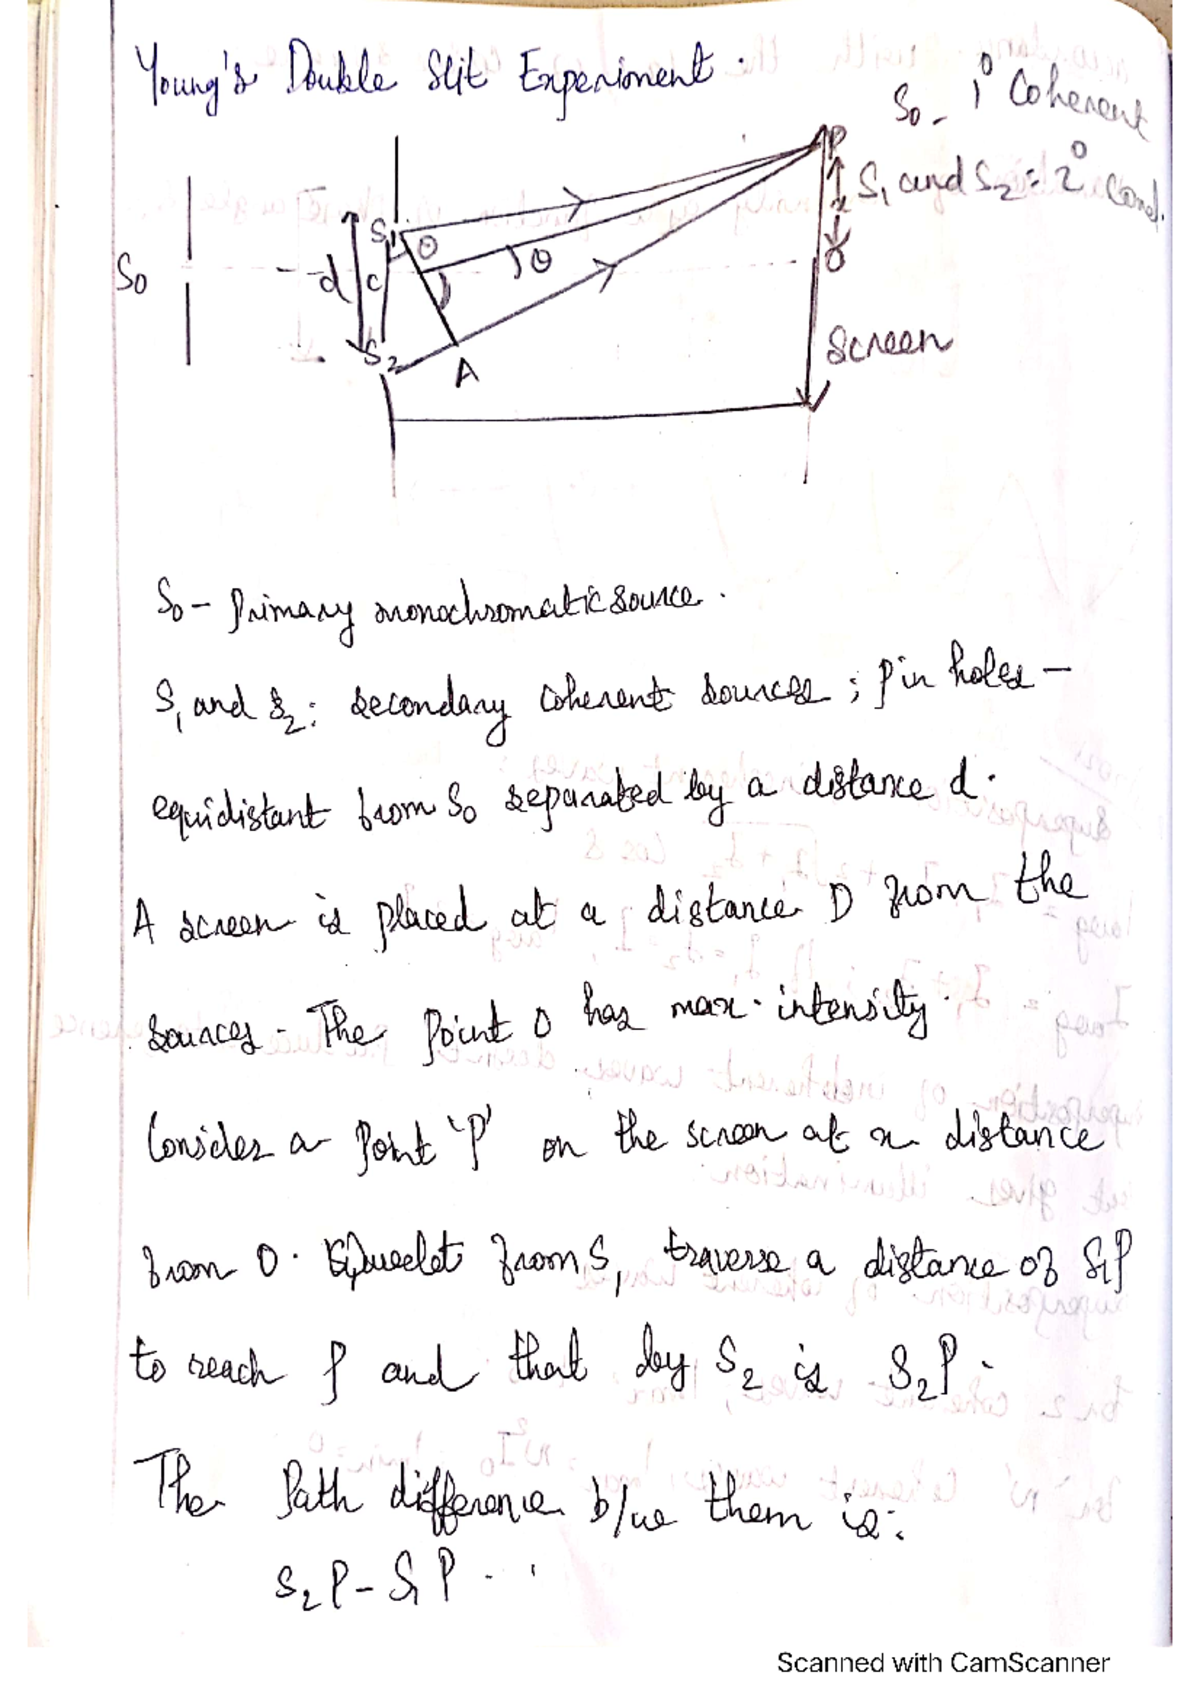 Young's Double Slit Experiment.
S₀ - 1° Coherent
S₁ and S₂ = 2° Cond.
P
x
O
S₁
θ
θ
S₀
d
C
S₂
A
Screen
S₀ - Primary monochromatic source.
S₁ and S₂: secondary coherent sources; pin holes -
equidistant from S₀ separated by a distance d.
A screen is placed at a distance D from the
sources - The point O has max. intensity.
Consider a point 'P' on the screen at x distance
from O. from S₁ traverse a distance of S₁P
to reach P and that by S₂ is S₂P.
The Path difference b/w them is:
S₂P - S₁P.
Scanned with CamScanner